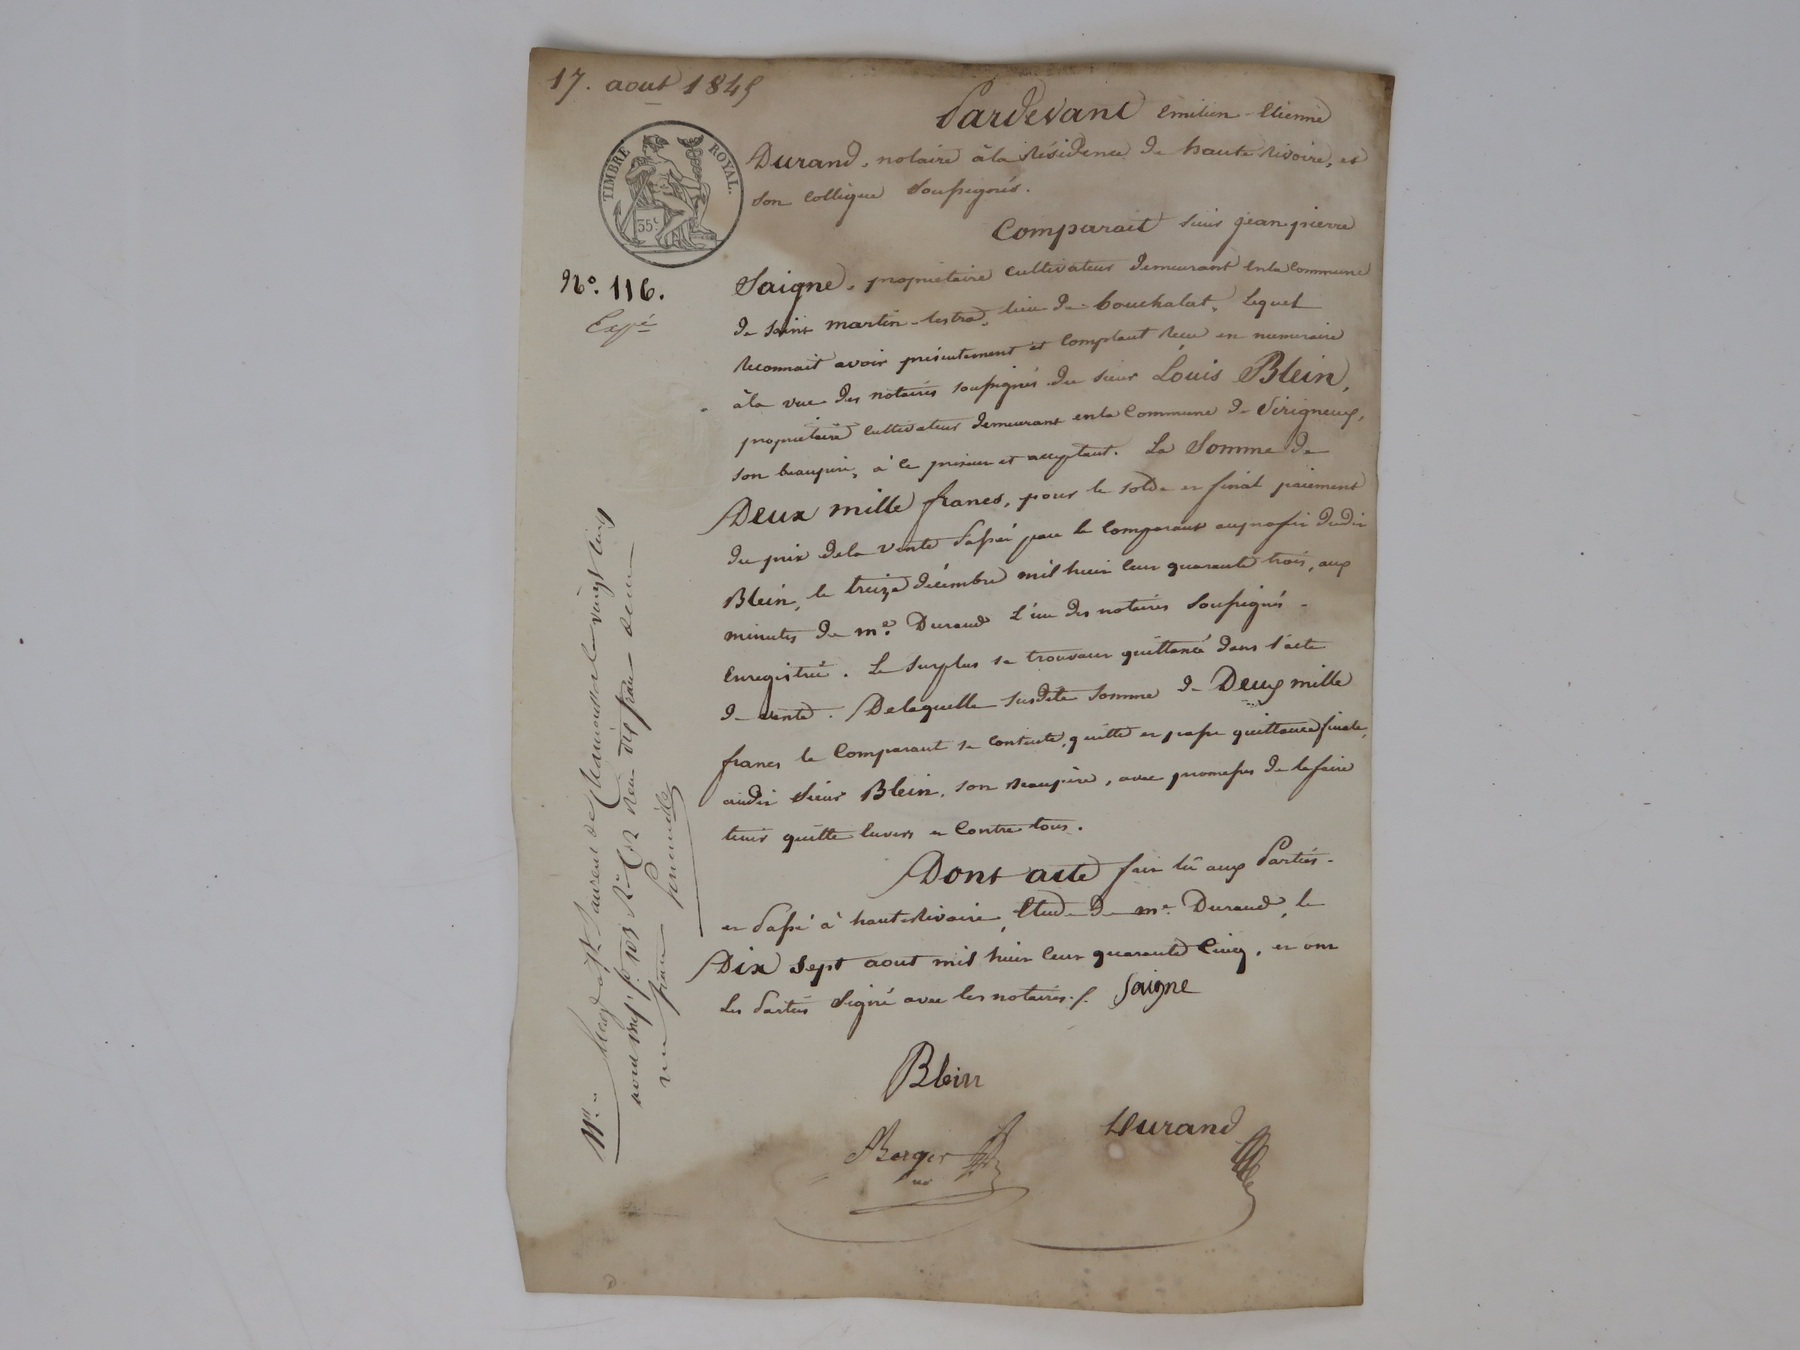 17. aout 1845
Pardevant Emilien-Etienne
Durand, notaire à la Résidence de haute Rivoire, et
son collègue soussignés.
TIMBRE ROYAL.
35c
Comparait sieur jean pierre
No. 116.
Saigne, propriétaire cultivateur demeurant en la commune
Expé
de saint martin-lestra, lieu de bouchalat, Lequel
Reconnait avoir présentement et comptant Recu en numeraire
à la vue des notaires soussignés du sieur Louis Blein,
propriétaire cultivateur demeurant en la commune de Virigneux,
son beaupère, à ce présent et acceptant. La Somme de
Deux mille francs, pour le solde et final paiement
du prix de la vente passée par le comparant au profit dudit
Blein, le treize décembre mil huit cent quarante trois, aux
minutes de me. Durand l'un des notaires soussignés -
Enregistrée. Le surplus se trouvant quittancé dans l'acte
de vente. De laquelle susdite somme de Deux mille
francs le comparant se contente, quitte et passe quittance finale,
audit sieur Blein, son Beaupère, avec promesses de le faire
tenir quitte envers et contre tous.
Dont acte fait lû aux Parties -
et Passé à haute Rivoire, Etude de me. Durand, le
Dix sept aout mil huit cent quarante cinq, et ont
Les Parties signé avec les notaires./. Saigne
Blein
Berger Durand
nre
Enregd à St. Laurent de Chamousset le vingt cinq
aout 1845, fo. 103 Ro. Ce. 2 Reçu dix francs décime
un franc